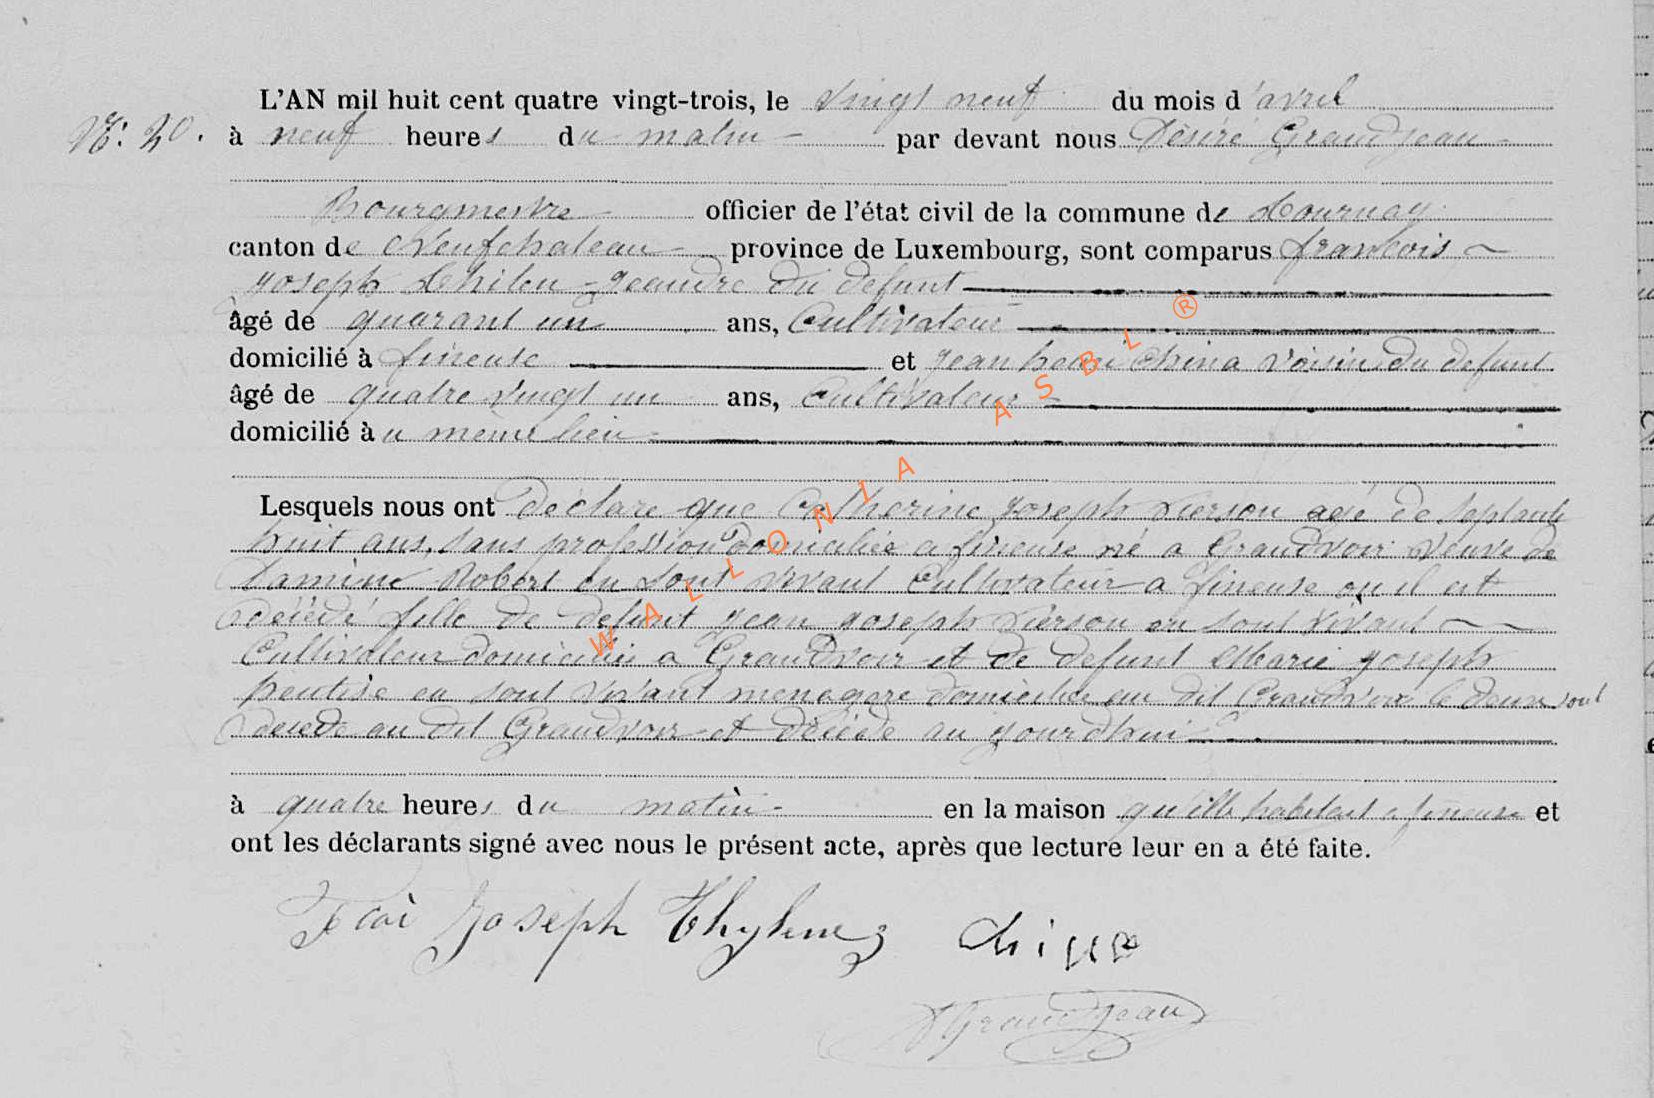 L'AN mil huit cent quatre vingt-trois, le vingt neuf du mois d'avril
N°. 20. à neuf heures du matin par devant nous Désiré Grandjean
Bourgmestre officier de l'état civil de la commune de Tournay
canton de Neufchateau province de Luxembourg, sont comparus francois
joseph geandre du defunt
âgé de quarant un ans, Cultivateur
domicilié à fineuse et jean henri China voisin du defunt
âgé de quatre vingt un ans, Cultivateur
domicilié à u même lieu
Lesquels nous ont déclaré que Catherine joseph Pierson agé de septante
huit ans, sans profession domiciliée a fineuse né a Grandvoir veuve de
Robert en sont vivant Cultivateur a fineuse ou il est
décédé fille de defunt jean joseph Pierson en sont vivant
Cultivateur domicilié a Grandvoir et de defunt Marie joseph
en sont vivant menagere domiciliée au dit Grandvoir le deux sont
decede au dit Grandvoir et décédé au jourdhui
à quatre heures du matin en la maison qu'elle habitait a fineuse et
ont les déclarants signé avec nous le présent acte, après que lecture leur en a été faite.
Joseph China
DGrandjean
WALLONIA ASBL ®